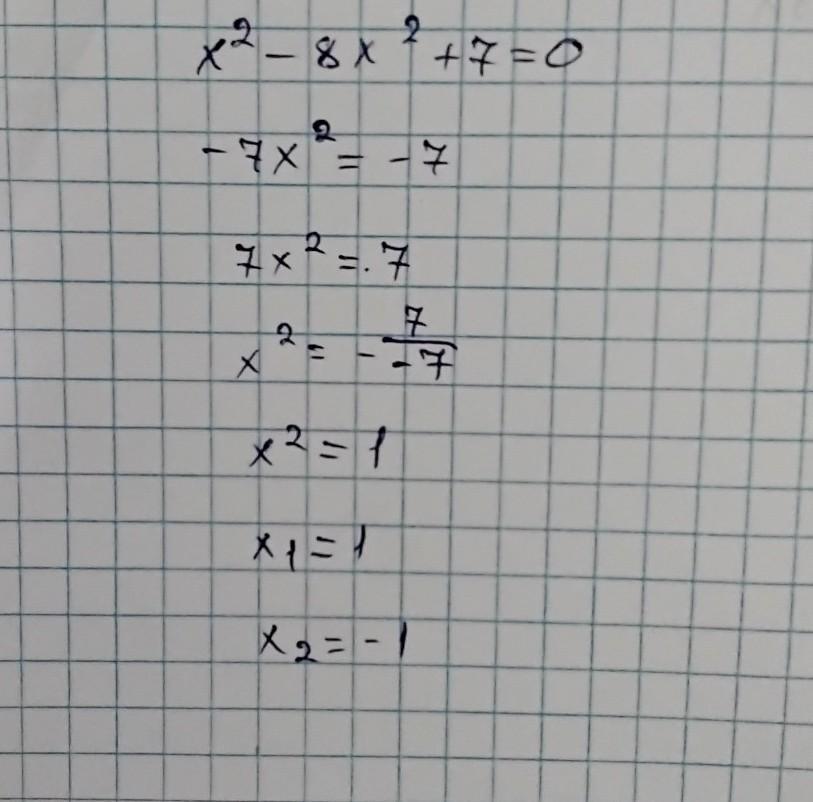 x² - 8x² + 7 = 0
-7x² = -7
7x² =. 7
x² = - 7/-7
x² = 1
x₁ = 1
x₂ = -1